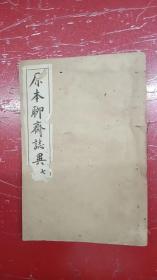 原本聊齋誌異
七